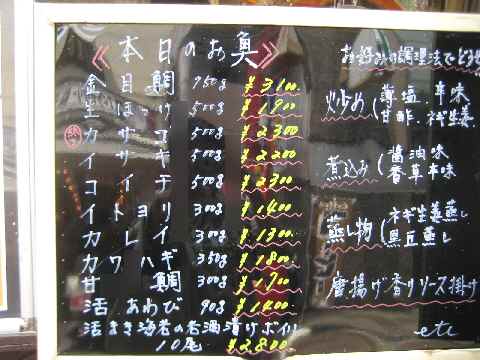 《本日のお魚》
金目鯛 750g ¥3100.
生ほっけ 500g ¥1900
カサゴ 500g ¥2300
イサキ 500g ¥2200
コチ 500g ¥2300
イトヨリ 300g ¥1400
カレイ 300g ¥1300.
カワハギ 350g ¥1800
甘鯛 300g ¥1900
活あわび 90g ¥1400
活まき海老の老酒漬けボイル
10尾 ¥2800
お好みの調理法でどうぞ
炒め(薄塩、辛味
甘酢、ネギ生姜
煮込み(醤油味
香草辛味
蒸し物(ネギ生姜蒸し
黒豆蒸し
唐揚げ香りソース掛け
etc